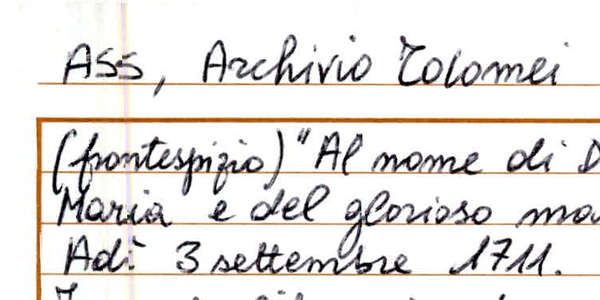 ASS, Archivio Tolomei
(frontespizio) "Al nome di D
Maria e del glorioso ma
Adì 3 settembre 1711.